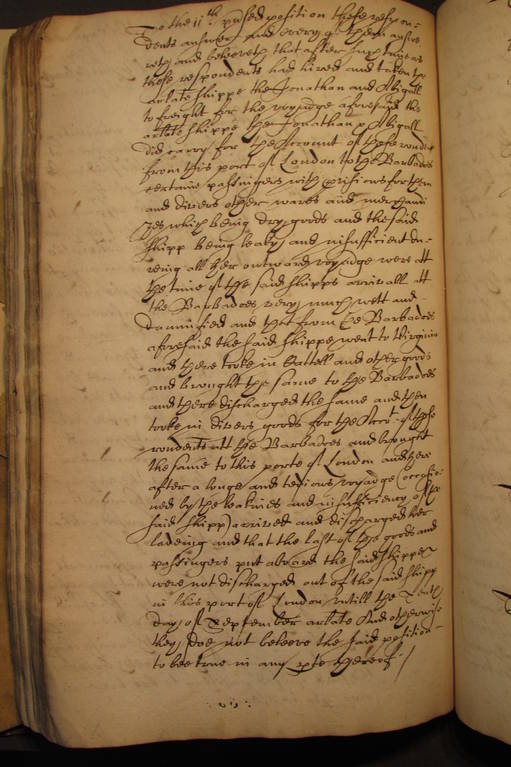 To the 11th pused position these respon=
dents answer and every of them answe
reth and beleeveth that after such time as
these respondents had hired and taken the
arlate shippe the Jonathan and Abigall
to freight for the voyadge aforesaid the
arlate shippe the Jonathan & Abigall
did carry for the Account of these rondts
from this port of London to the Barbados
certaine passingers with provisions for them
and divers other wares and merchandi
zes which being dry goods and the said
shipp being leaky and insufficient du=
reing all her outward voyadge were att
the time of the said shipps arrivall att
the Barbadoes very much wett and
damnified and that from the Barbadoes
aforesaid the said shippe went to Virginia
and there tooke in Cattell and other goods
and brought the same to the Barbadoes
and there discharged the same and then
tooke in divers goods for the Acct of these
rondents att the Barbadoes and brought
the same to this porte of London and here
after a longe and tedious voyadge (occasio
ned by the leakines and insufficiency of the
said shipp) arrived and discharged her
ladeing and that the last of the goods and
passingers put aboard the said shippe
were not discharged out of the said shipp
in this port of London untill the
day of September arlate And otherwise
they doe not beleeve the said position
to bee true in any pte thereof /